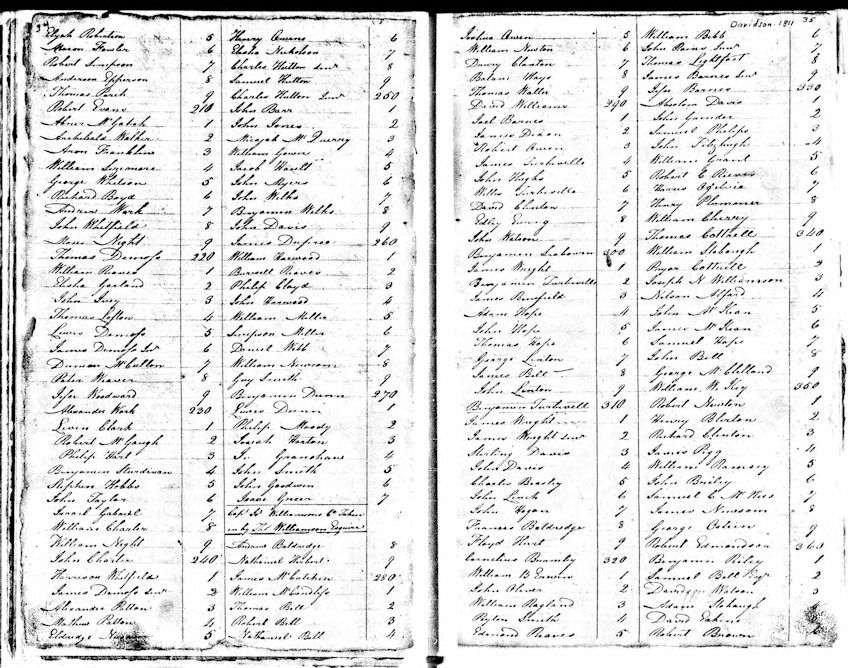 34
Elijah Robertson 5
Mason Fowler 6
Robert Simpson 7
Anderson Epperson 8
Thomas Parch 9
Robert Evans 210
Abner McGatch 1
Archibald Walker 2
Aron Franklin 3
William Sizemore 4
George Whelson 5
Richard Boyd 6
Andrew Work 7
John Whitfield 8
Moses Night 9
Thomas Demoss 220
William Reaves 1
Elisha Garland 2
John Ivey 3
Thomas Lofton 4
Lewis Demoss 5
James Demoss Jnr 6
Duncan McCutton 7
Peter Weaver 8
Jesse Woodward 9
Alexander Work 230
Lewis Clark 1
Robert McGaugh 2
Philip Hurt 3
Benjamin Sturdivan 4
Stephen Hobbs 5
John Taylor 6
Israel Gabriel 7
William Charter 8
William Night 9
John Charter 240
Harrison Whitfield 1
James Demoss Snr 2
Alexander Patton 3
Mathew Patton 4
Eldredge 5
Henry Owens 6
Elisha Nicholson 7
Charles Hutton Senr 8
Samuel Hutton 9
Charles Hutton Junr 250
John Barr 1
John Jones 2
Micajah McQuerry 3
William Gower 4
Jacob Havell 5
John Myers 6
John Wilks 7
Benjamin Wilks 8
John Davis 9
James Dupree 260
William Harwood 1
Burwell Reaves 2
Philip Cloyd 3
John Harwood 4
William Miller 5
Simpson Miller 6
Daniel Webb 7
William Newsom 8
Guy Smith 9
Benjamin Dunn 270
Lewis Dunn 1
Philip Moody 2
Josiah Horton 3
Granshaus 4
John Smith 5
John Goodwin 6
Isaac Green 7
Capt Js Williamsons Co Taken
in by Ths Williamson Esquire
Andrew Baldredge 8
Nathaniel Hubert 9
James McCutchen 280
William McCandless 1
Thomas Bell 2
Robert Bell 3
Nathaniel Bell 4
Davidson 1811 35
Joshua Owen 5
William Newton 6
Drury Clanton 7
Balam Hays 8
Thomas Waller 9
David Williams 290
Joel Barnes 1
James Dixon 2
Robert Owen 3
James Turbeville 4
John Hughs 5
Willis Turbeville 6
David Clinton 7
Edley Ewing 8
John Watson 9
Benjamin Seaborn 300
James Wright 1
Benjamin Turbeville 2
James Benfield 3
Adam Hope 4
John Hope 5
Thomas Hope 6
George Linton 7
James Bell 8
John Linton 9
Benjamin Turbevill 310
James Wright 1
James Wright Senr 2
Sterling Davis 3
John Davis 4
Charles Beasly 5
John Link 6
John Hogan 7
Frances Baldredge 8
Floyd Hurt 9
Cornelius Brumby 320
William B Ewen 1
John Oliver 2
William Hagland 3
Peyton Smith 4
Edmond Reaves 5
William Bibb 6
John Rains Senr 7
Thomas Lightfoot 8
James Barnes Senr 9
Jesse Barnes 330
Absolom Davis 1
John Gunder 2
Samuel Philips 3
John Fitzhugh 4
William Grant 5
Robert C Reeves 6
Harris Ogilvie 7
Henry Plummer 8
William Cherry 9
Thomas Cottrell 340
William Slobaugh 1
Pryor Cottrell 2
Joseph N Williamson 3
Nelson Alford 4
John McKean 5
James McKean 6
Samuel Hope 7
John Bell 8
George McClelland 9
William W. Key 350
Robert Newton 1
Henry Blerton 2
Richard Clinton 3
James Pigg 4
William Ramsey 5
John Briley 6
Samuel C McNees 7
James Newsom 8
George 9
Robert Edmondson 360
Benjamin Riley 1
Samuel Bell Esqr 2
David Watson 3
Adam Slobaugh 4
David Eakin 5
Robert Brown 6